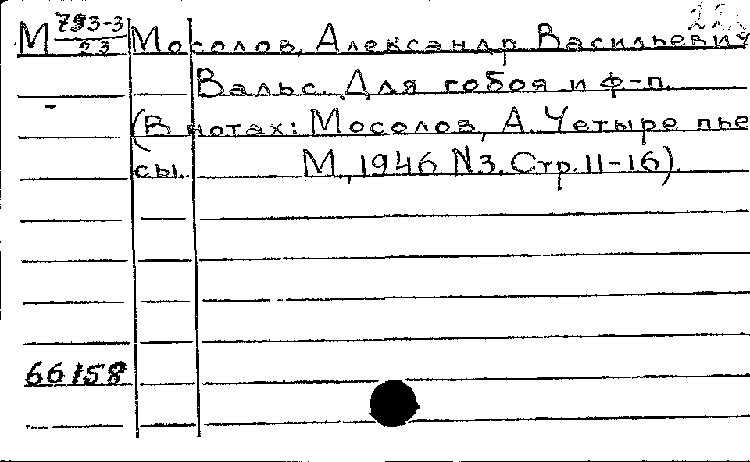 22
М 793-3/23 Мосолов, Александр Васильевич
Вальс. Для гобоя и ф-п.
(В нотах: Мосолов, А. Четыре пье
сы. М., 1946 N3. Стр. 11-16).
66158